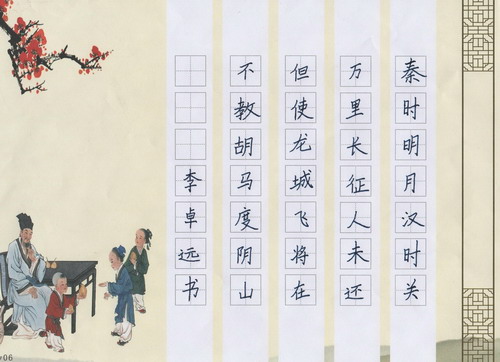 秦时明月汉时关
万里长征人未还
但使龙城飞将在
不教胡马度阴山
李卓远书
06